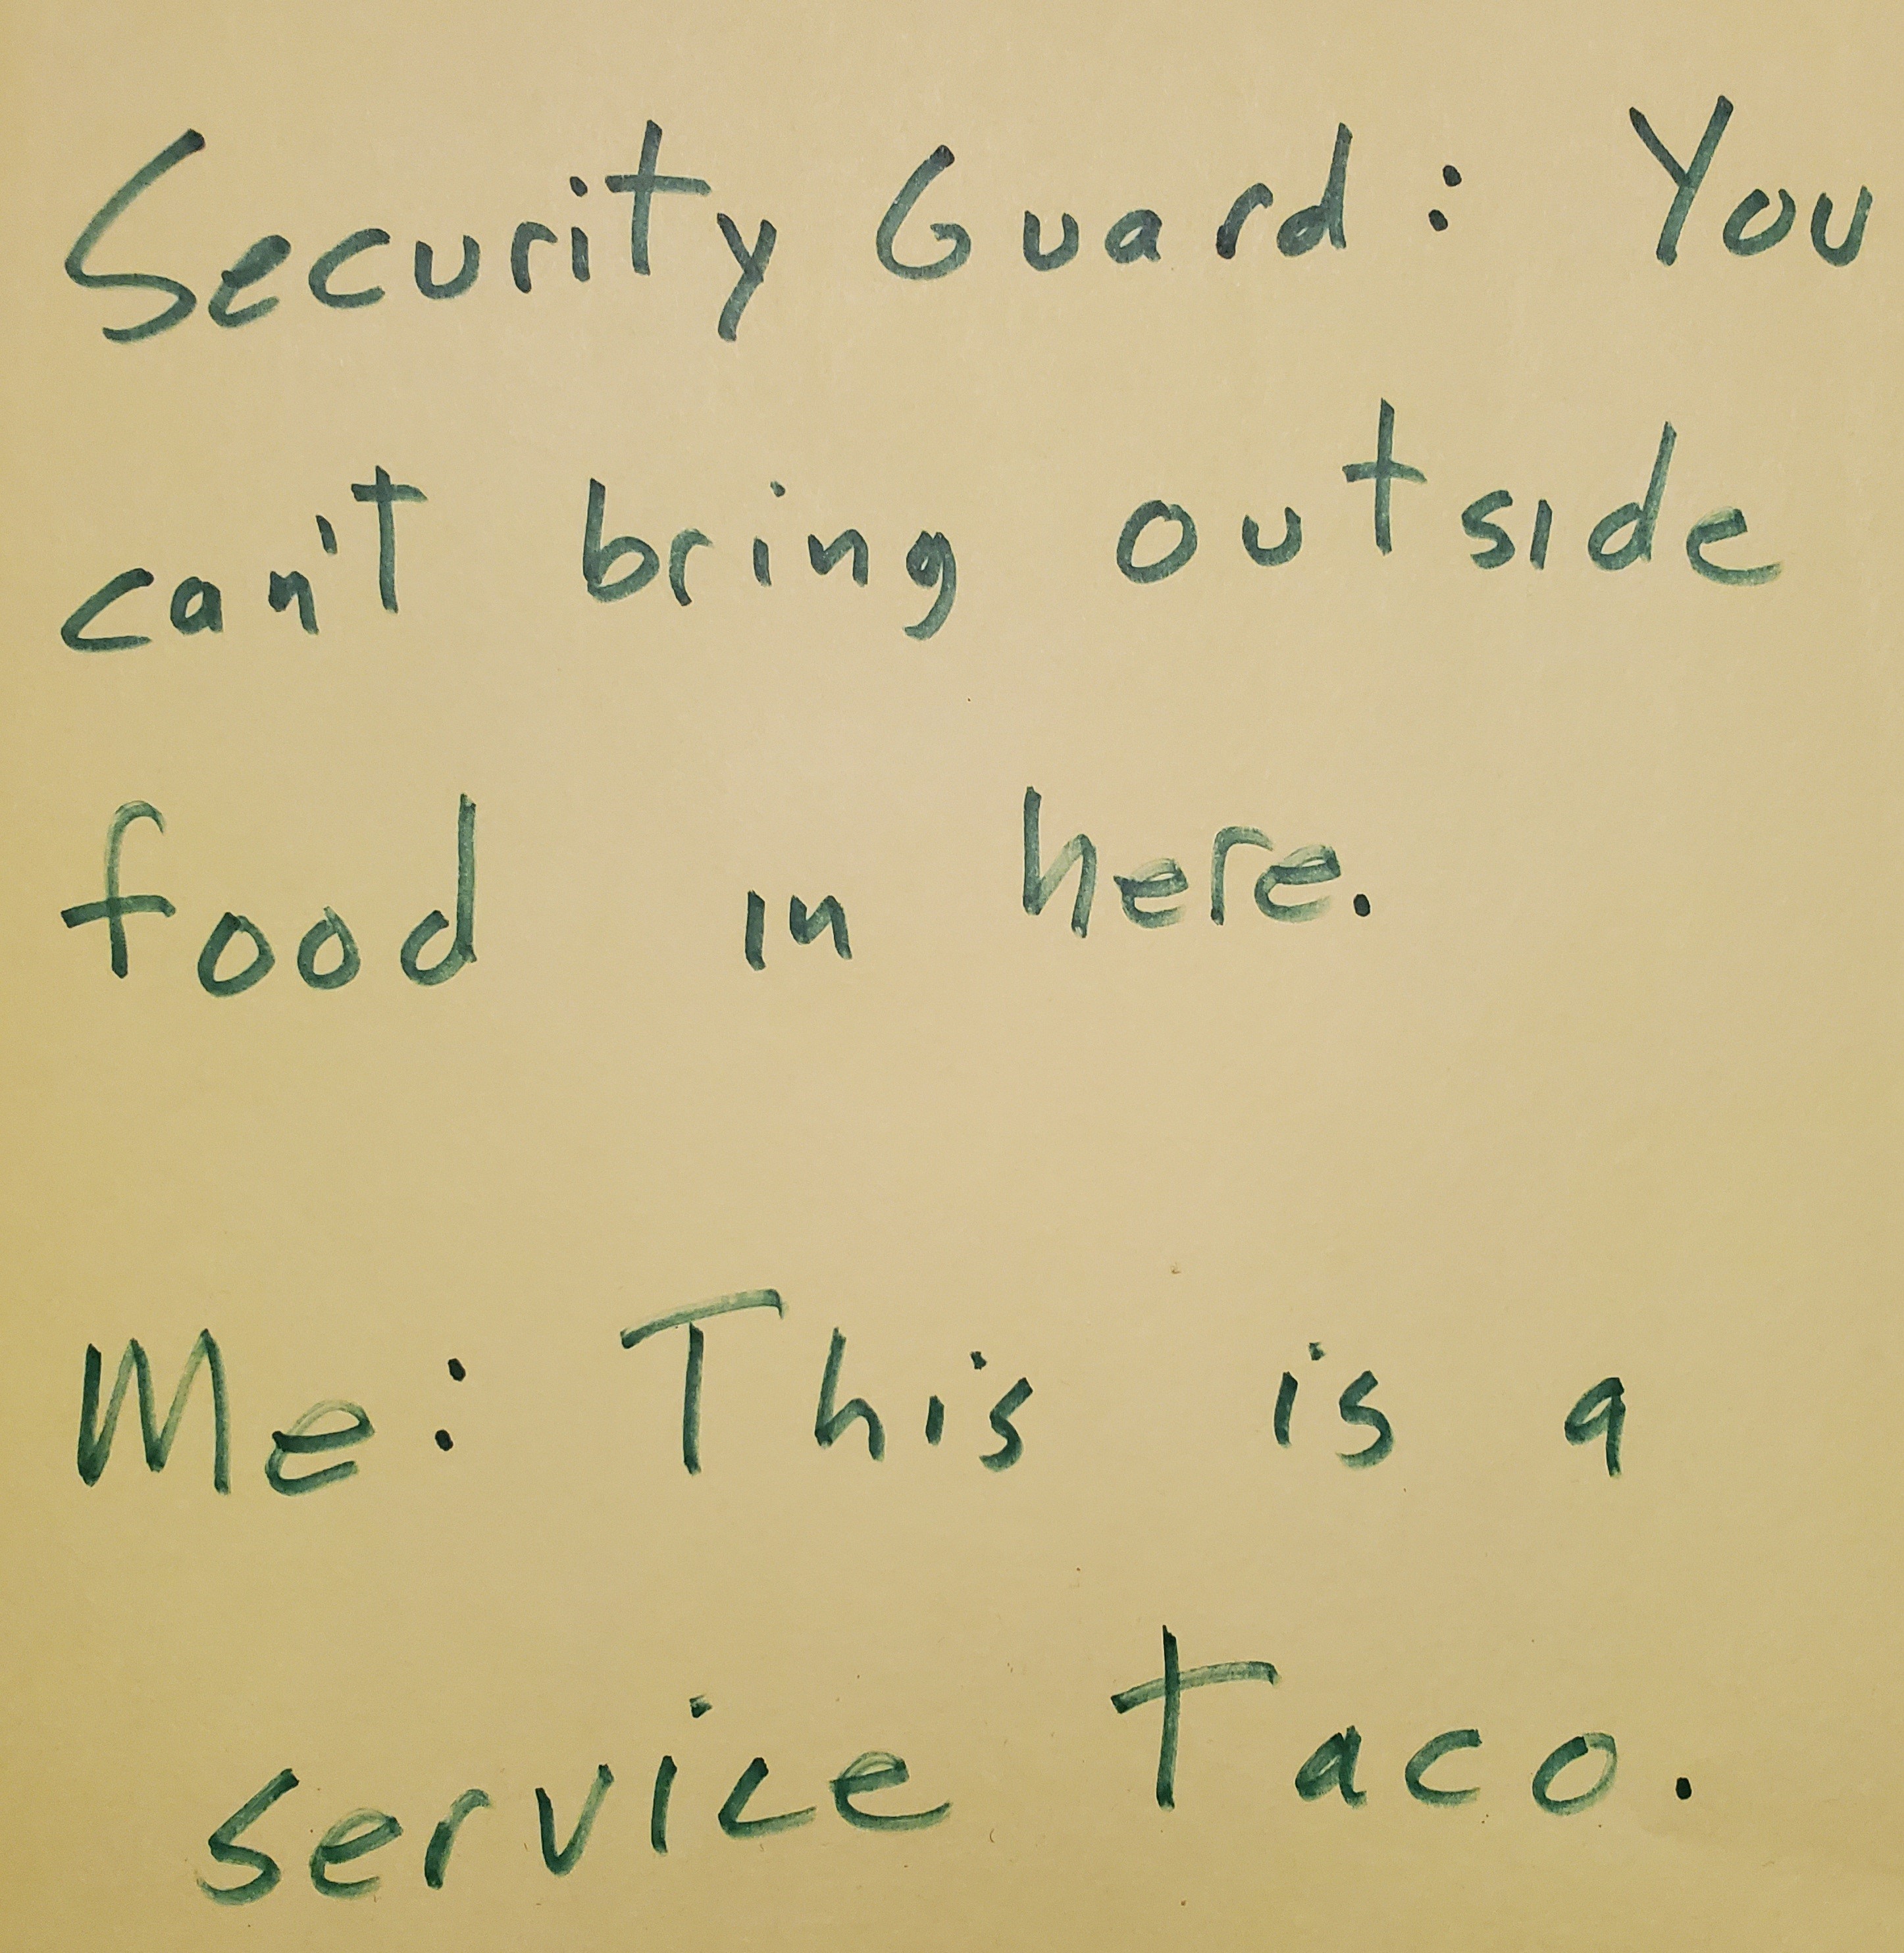 Security Guard: You
can't bring outside
food in here.
Me: This is a
service taco.